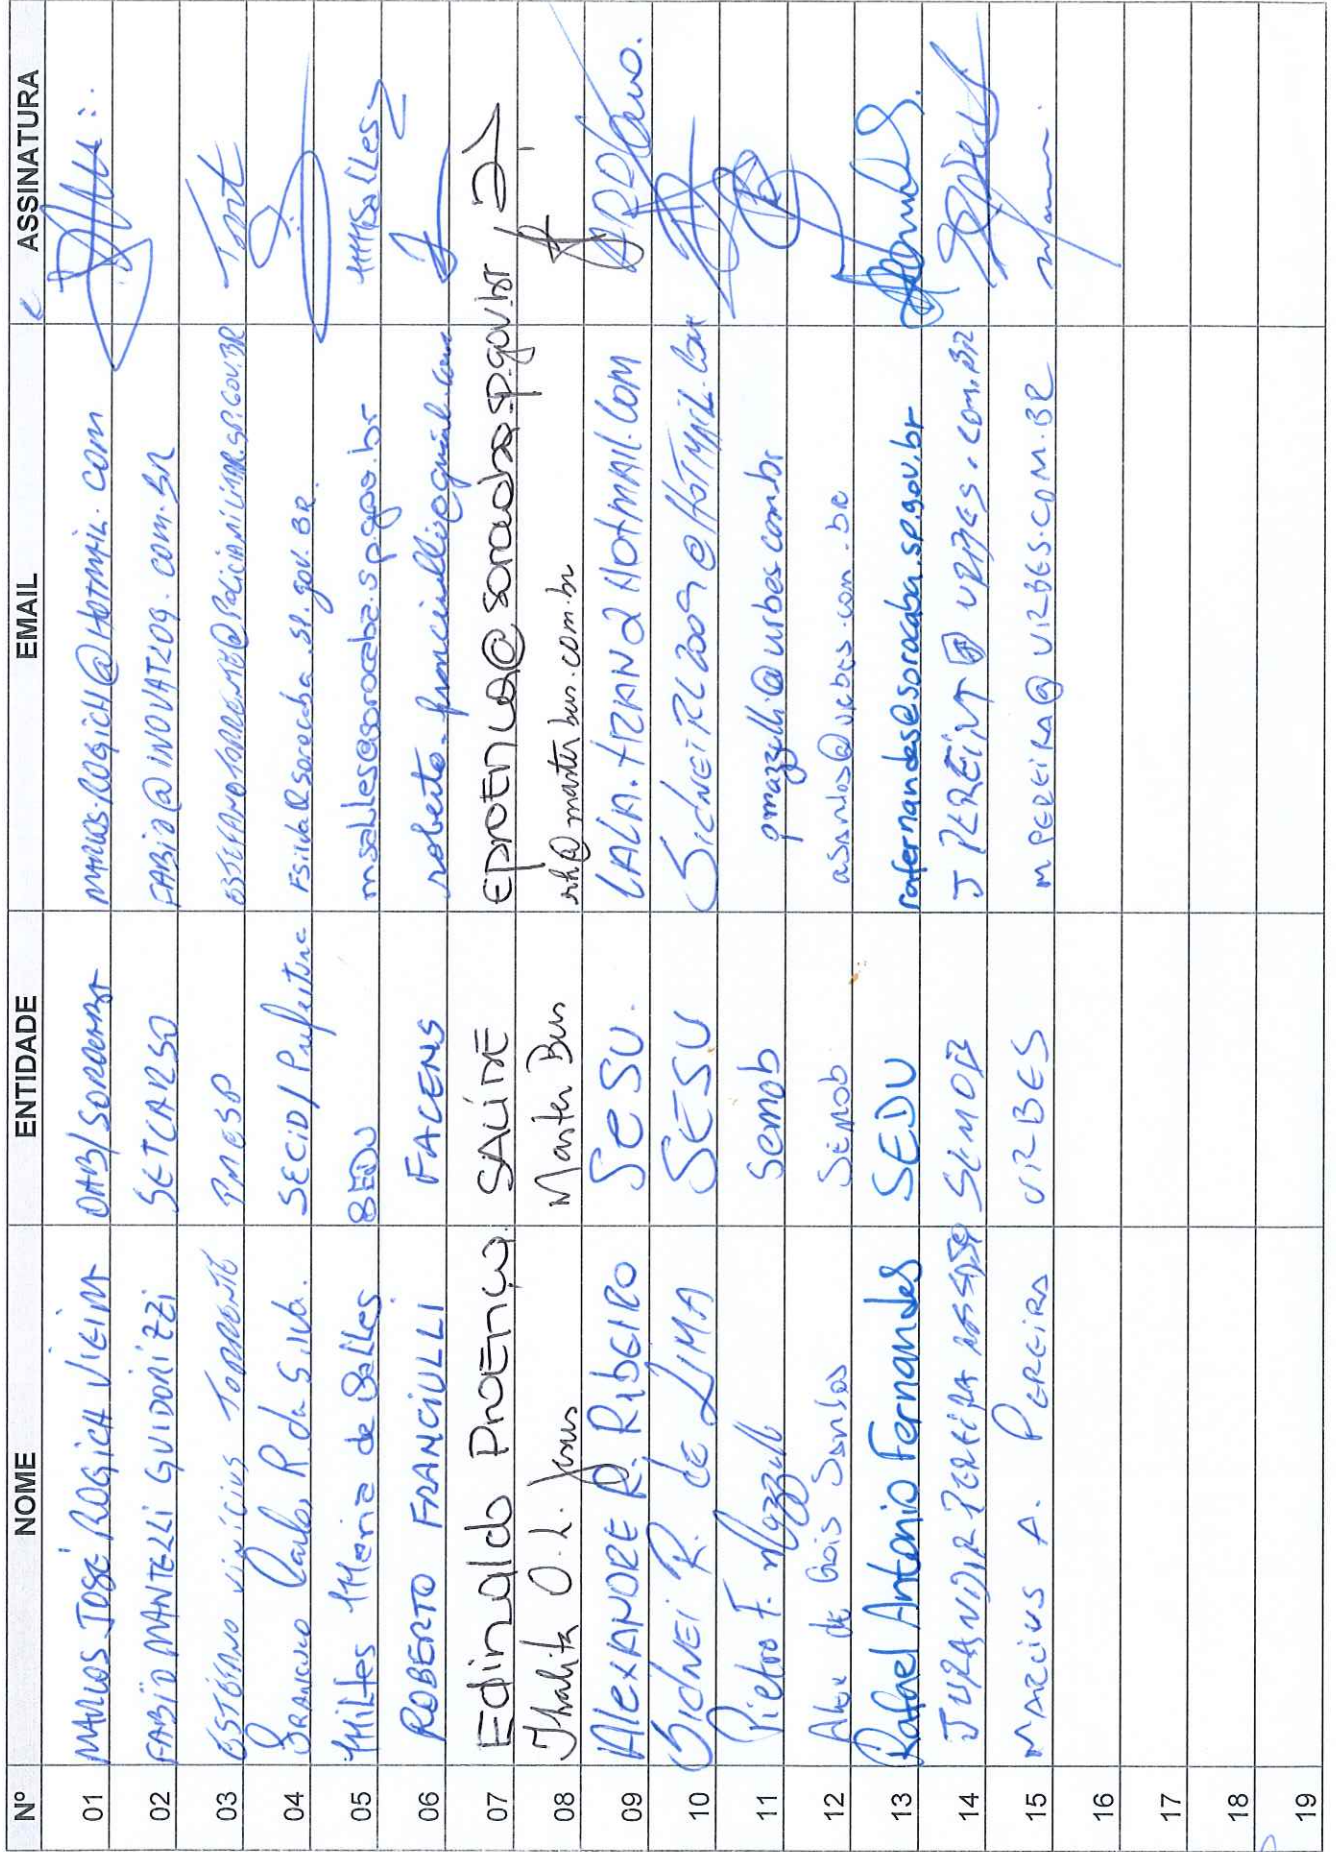 Nº NOME ENTIDADE EMAIL ASSINATURA
01 MARCOS JOSÉ ROGICH VIEIRA OAB/SOROCABA MARCOS.ROGICH@HOTMAIL.COM
02 FABIO MANTELLI GUIDORIZZI SETCARSO FABIO@INOVATLOG.COM.BR
03 ESTÉFANO VINÍCIUS TORRENTE PMESP Torrt
04 Carlos R. da Silva. SECID/Prefeitura Fsilva@sorocaba.sp.gov.BR.
05 Maria de Salles SEDU msalles@sorocaba.sp.gov.br MMSalles
06 ROBERTO FRANCIULLI FACENS roberto.franciulli@gmail.com
07 Edinaldo ProEnça SAÚDE EproEnca@sorocaba.sp.gov.br
08 Thalita O. L. Jesus Master Bus rh@masterbus.com.br
09 AlexANDRE R. RibEIRO SeSU. ARRibeiro.
10 SidNEI R. de LIMA SESU SidNEIRL2009@HOTMAIL.Com
11 Pietro F. Mazzulli Semob pmazzulli@urbes.com.br
12 Alex de Gois Santos SEMOB asantos@urbes.com.br
13 Rafael Antonio Fernandes SEDU rafernandes@sorocaba.sp.gov.br
14 JURANDIR PEREIRA SEMOB URBES.COM.BR
15 MARCIUS A. PEREIRA URBES MPEREIRA@URBES.COM.BR
16
17
18
19